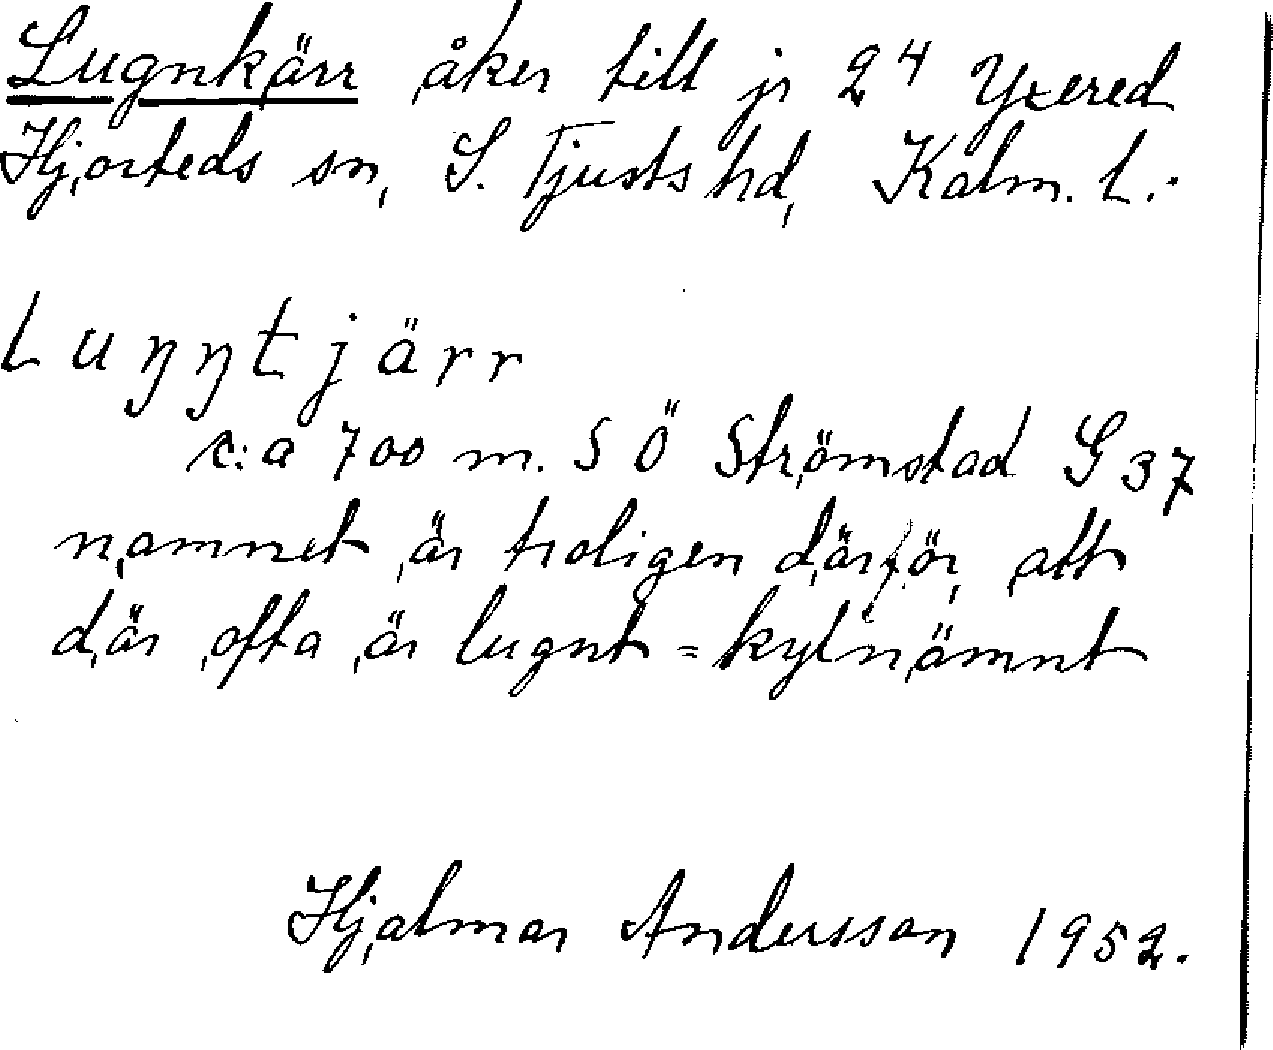 Lugnkärr åker till jr 2⁴ Yxered
Hjorteds sn, S. Tjusts hd, Kalm. L.
Luŋŋtjärr
c:a 700 m. S Ö Strömstad G 37
namnet är troligen därför, att
där ofta är lugnt = kylnämnt
Hjalmar Andersson 1952.